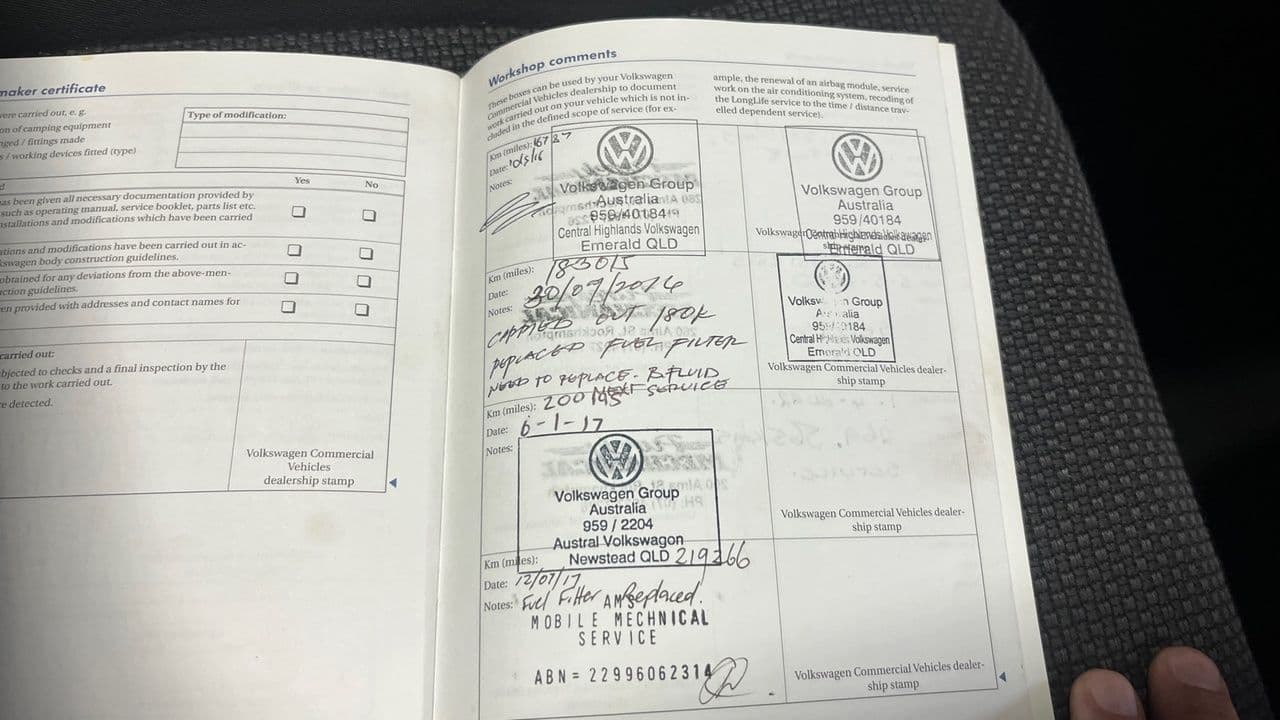 maker certificate
were carried out, e. g.
on of camping equipment
nged / fittings made
s / working devices fitted (type)
Type of modification:
Yes
No
has been given all necessary documentation provided by
such as operating manual, service booklet, parts list etc.
nstallations and modifications which have been carried
ations and modifications have been carried out in ac-
kswagen body construction guidelines.
obtained for any deviations from the above-men-
ction guidelines.
en provided with addresses and contact names for
carried out:
bjected to checks and a final inspection by the
to the work carried out.
e detected.
Volkswagen Commercial
Vehicles
dealership stamp
Workshop comments
These boxes can be used by your Volkswagen
Commercial Vehicles dealership to document
work carried out on your vehicle which is not in-
cluded in the defined scope of service (for ex-
ample, the renewal of an airbag module, service
work on the air conditioning system, recoding of
the LongLife service to the time / distance trav-
elled dependent service).
Km (miles):
Date:
Notes:
Volkswagen Group
Australia
959/40184
Central Highlands Volkswagen
Emerald QLD
Volkswagen Group
Australia
959/40184
Central Highlands Volkswagen
Emerald QLD
Km (miles): 183015
Date: 30/07/2016
Notes:
CARRIED OUT 180K
REPLACED FUEL FILTER
NEED TO REPLACE. B.FLUID
NEXT SERVICE
Volkswagen Group
Australia
959/40184
Central Highlands Volkswagen
Emerald QLD
Volkswagen Commercial Vehicles dealer-
ship stamp
Km (miles): 200
Date: 6-1-17
Notes:
Volkswagen Group
Australia
959 / 2204
Austral Volkswagon
Newstead QLD
Volkswagen Commercial Vehicles dealer-
ship stamp
Km (miles): 219266
Date: 12/07/17
Notes: Fuel Filter Replaced.
AMS
MOBILE MECHNICAL
SERVICE
ABN = 22996062314
Volkswagen Commercial Vehicles dealer-
ship stamp